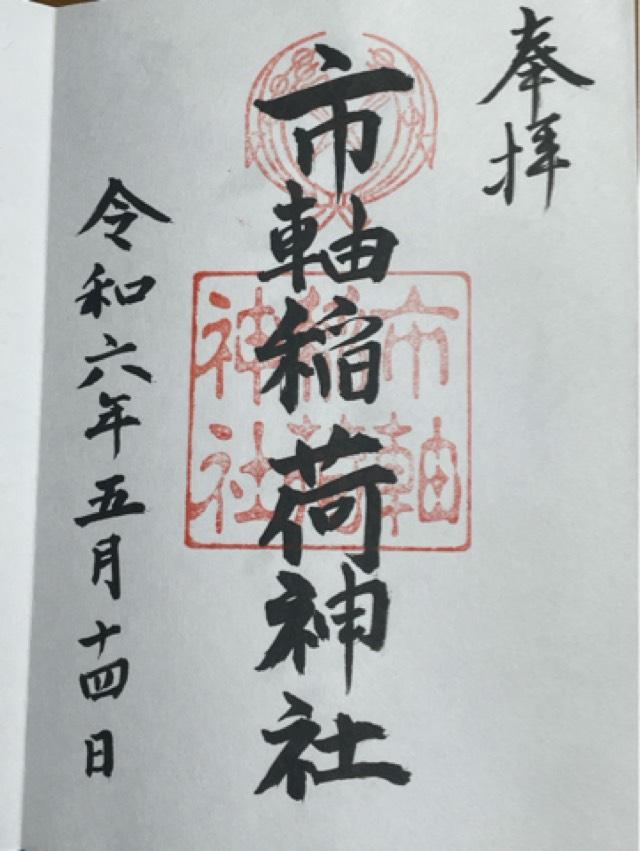 奉拝
市軸稲荷神社
市軸稲荷神社
令和六年五月十四日